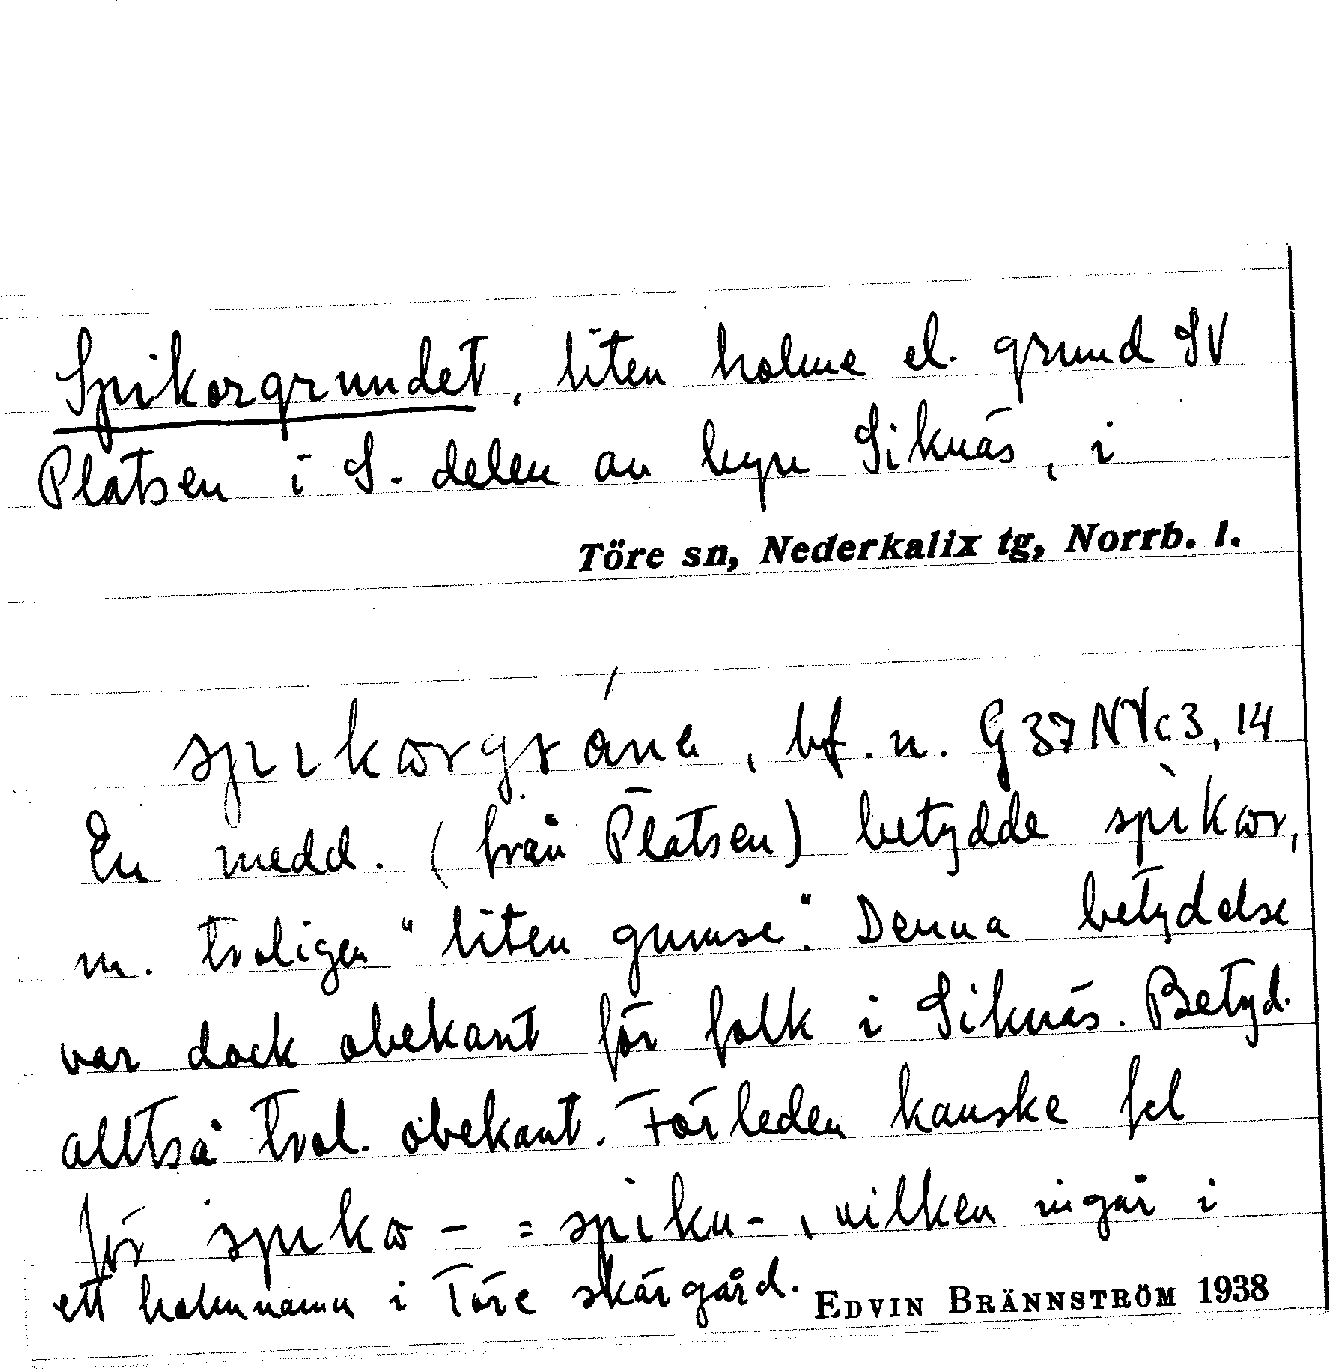 Spikorgrundet, liten holme el. grund SV
Platsen i S. delen av byn Siknäs, i
Töre sn, Nederkalix tg, Norrb. l.
bf. n. G 37 NYc3, 14
En medd. (från Platsen) betydde spikor,
m. troligen "liten gumse". Denna betydelse
var dock obekant för folk i Siknäs. Betyd.
alltså trol. obekant. Förleden kanske fel
för spiko- = spiku-, vilken ingår i
ett holmnamn i Töre skärgård.
EDVIN BRÄNNSTRÖM 1938